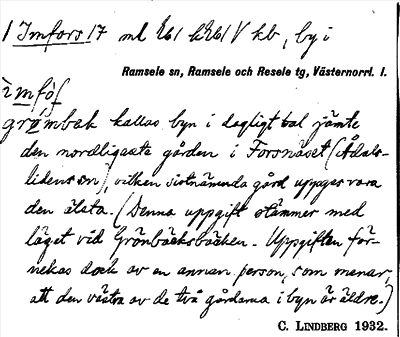 1 Imfors 17 ml 261 k 261 V kb, by i
Ramsele sn, Ramsele och Resele tg, Västernorrl. l.
ìmfòſ
grömbak kallas byn i dagligt tal jämte
den nordligaste gården i Forsnäset (Ådals-
lidens sn), vilken sistnämnda gård uppges vara
den älsta. (Denna uppgift stämmer med
läget vid Grönbäcksbäcken. Uppgiften för-
nekas dock av en annan person, som menar,
att den västra av de två gårdarna i byn är äldre.)
C. LINDBERG 1932.